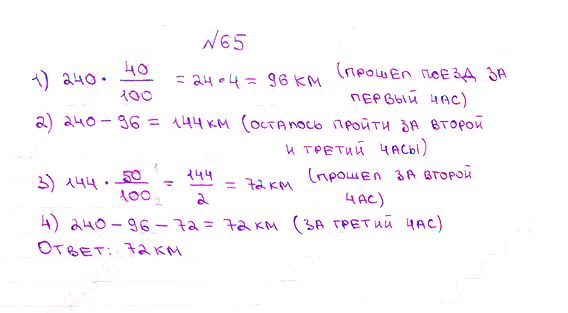 №65
1) 240 · 40/100 = 24·4 = 96 км (прошел поезд за
первый час)
2) 240 – 96 = 144 км (осталось пройти за второй
и третий часы)
3) 144 · 50 1/100 2 = 144/2 = 72 км (прошел за второй
час)
4) 240 – 96 – 72 = 72 км (за третий час)
Ответ: 72 км